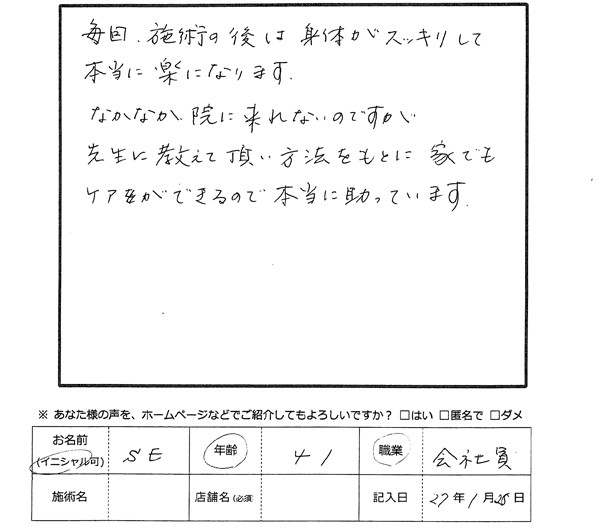 毎回、施術の後は身体がスッキリして
本当に楽になります。
なかなか院に来れないのですが
先生に教えて頂い方法をもとに家でも
ケアがができるので本当に助っています。
※ あなた様の声を、ホームページなどでご紹介してもよろしいですか？ □はい □匿名で □ダメ
お名前 (イニシャル可) SE 年齢 41 職業 会社員
施術名 店舗名(必須) 記入日 27年1月26日